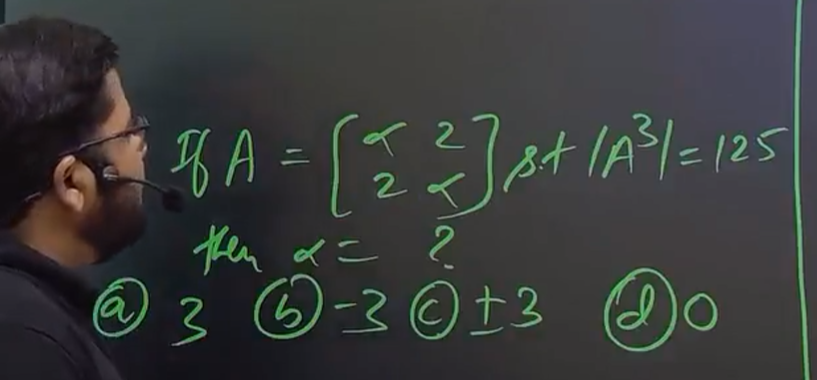 If A = [α 2 2 α] s.t |A³| = 125
then α = ?
(a) 3 (b) -3 (c) ±3 (d) 0